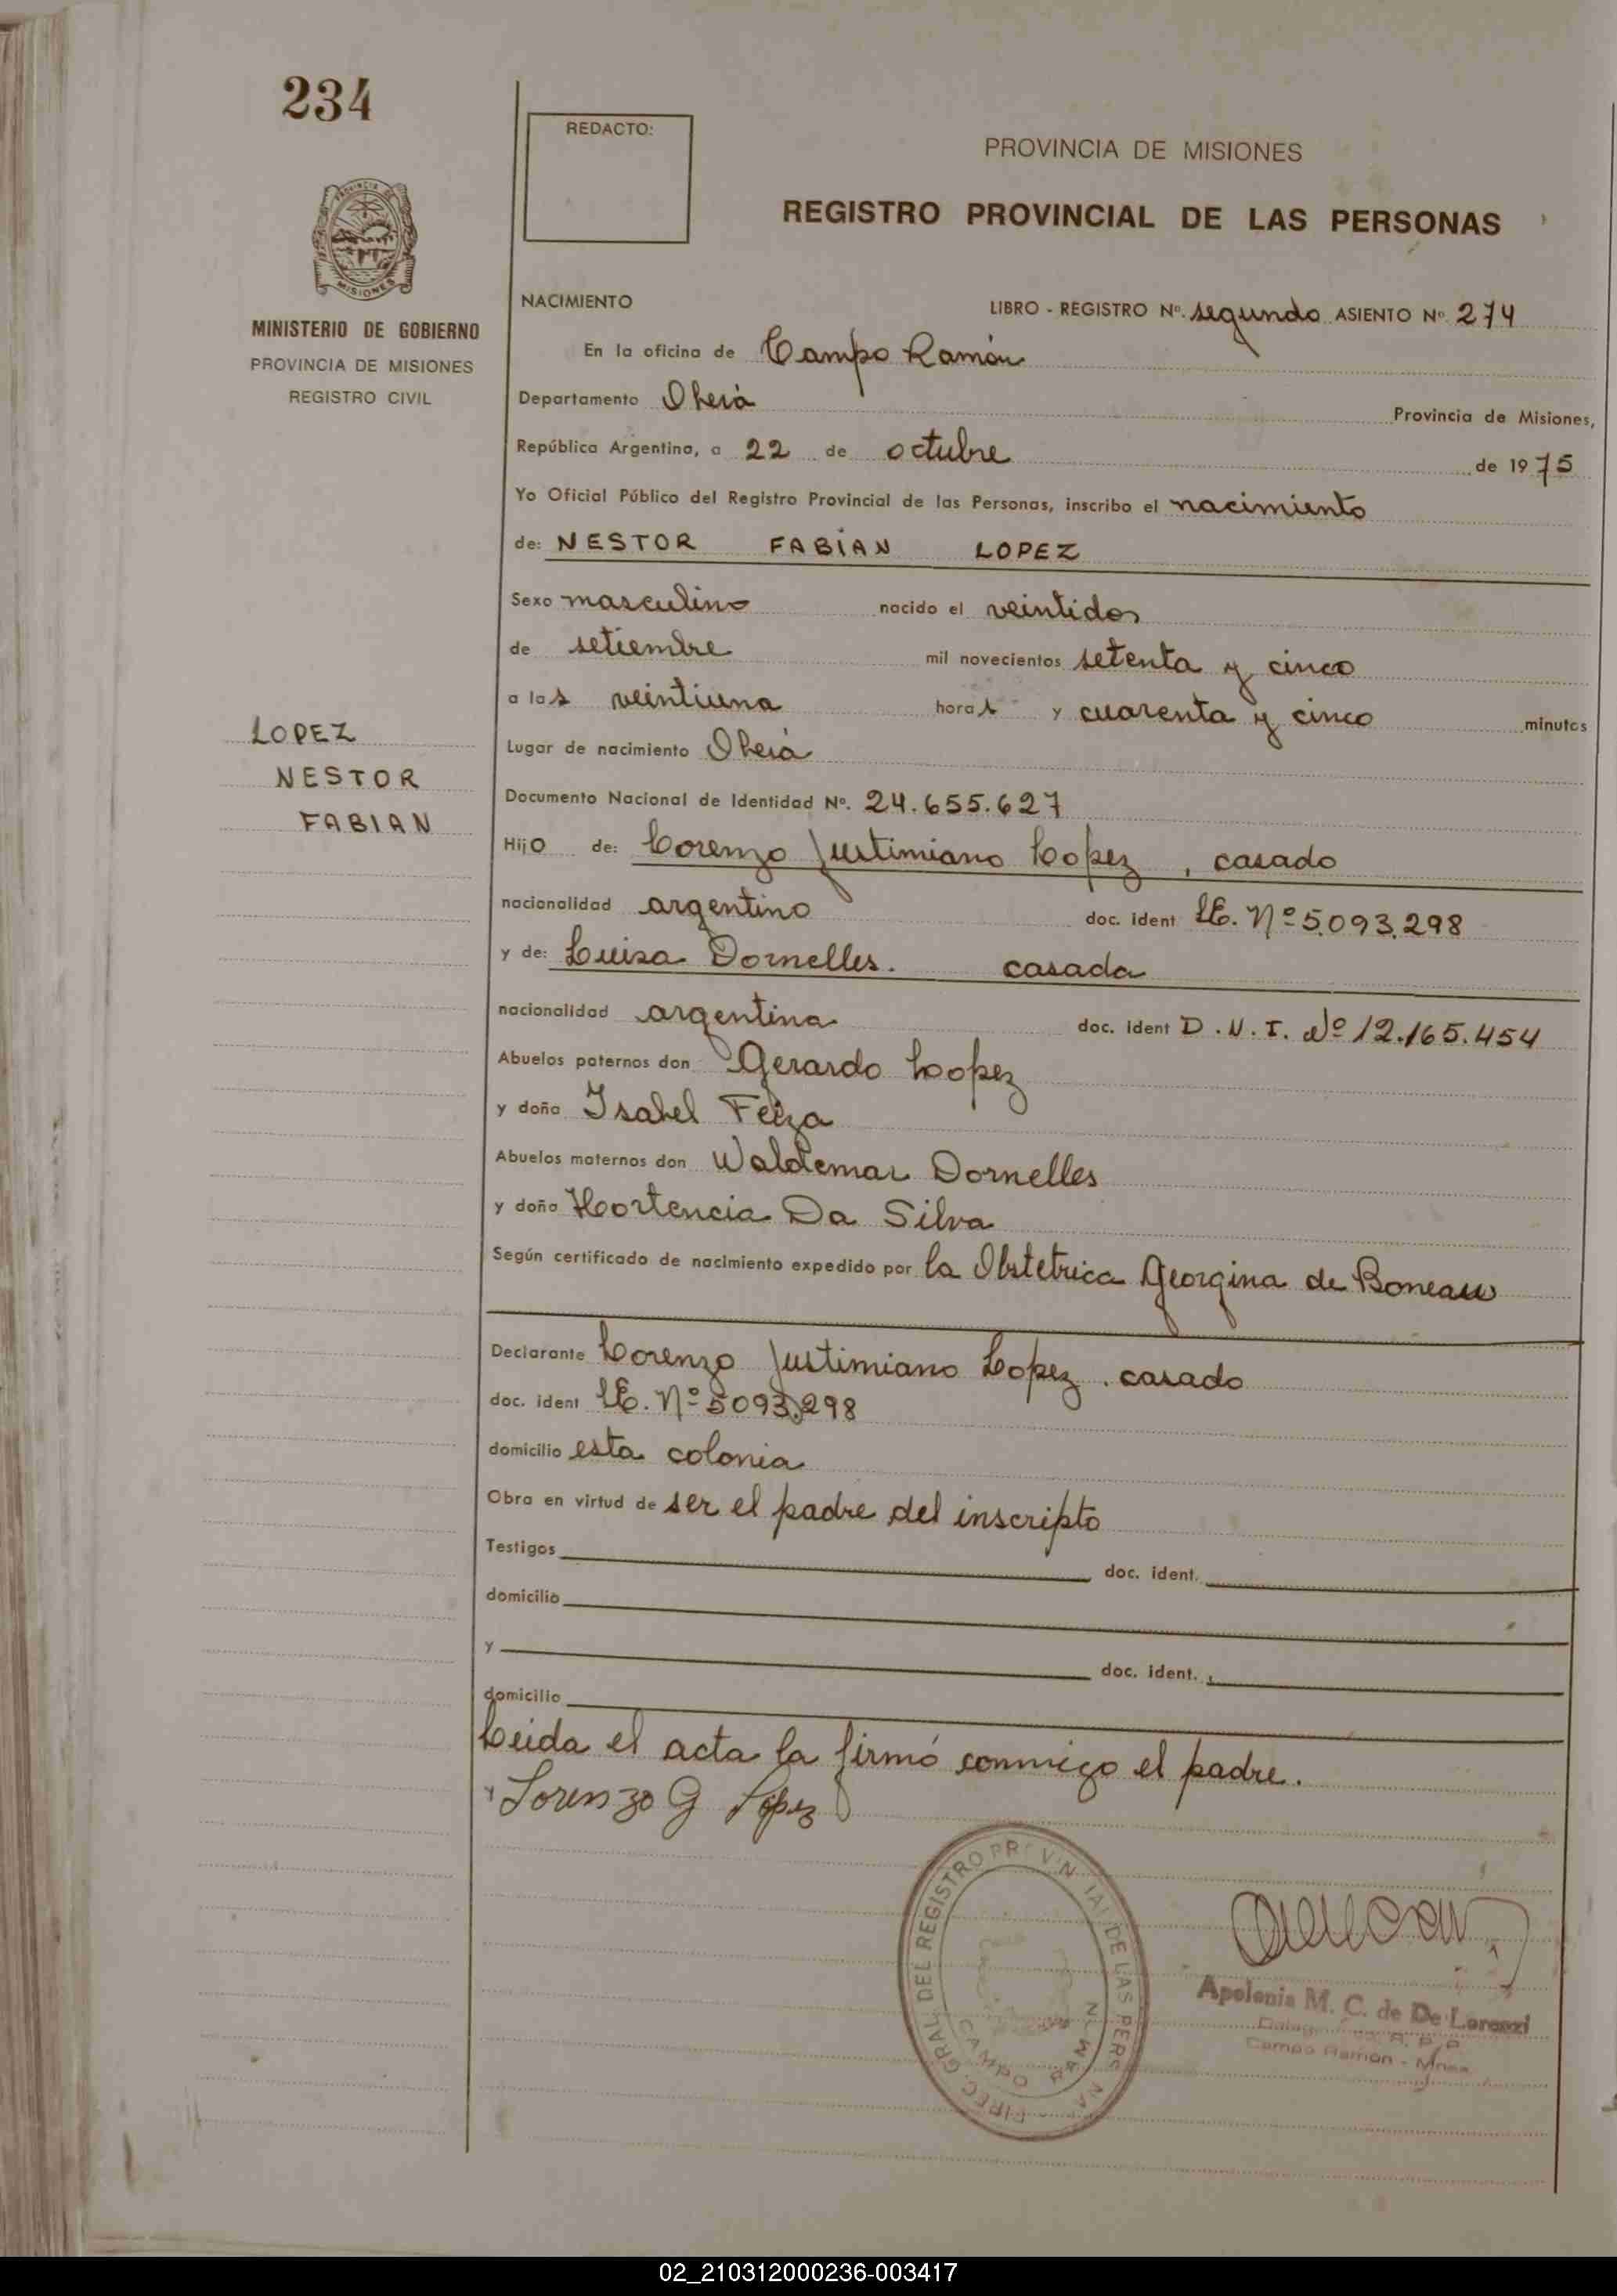 234
REDACTO:
PROVINCIA DE MISIONES
REGISTRO PROVINCIAL DE LAS PERSONAS
PROVINCIA DE
MISIONES
MINISTERIO DE GOBIERNO
PROVINCIA DE MISIONES
REGISTRO CIVIL
NACIMIENTO LIBRO - REGISTRO Nº. segundo ASIENTO Nº 274
En la oficina de Campo Ramón
Departamento Oberá Provincia de Misiones,
República Argentina, a 22 de octubre de 1975
Yo Oficial Público del Registro Provincial de las Personas, inscribo el nacimiento
de: NESTOR FABIAN LOPEZ
Sexo masculino nacido el veintidos
de setiembre mil novecientos setenta y cinco
a las veintiuna horas y cuarenta y cinco minutos
LOPEZ
NESTOR
FABIAN
Lugar de nacimiento Oberá
Documento Nacional de Identidad Nº. 24.655.627
Hijo de: Lorenzo Justimiano Lopez, casado
nacionalidad argentino doc. ident LE. Nº 5.093.298
y de: Luisa Dornelles. casada
nacionalidad argentina doc. ident D.N.I. Nº 12.165.454
Abuelos paternos don Gerardo Loopez
y doña Isabel Feiza
Abuelos maternos don Waldemar Dornelles
y doña Hortencia Da Silva
Según certificado de nacimiento expedido por la Obstetrica Georgina de Boneau
Declarante Lorenzo Justimiano Lopez. casado
doc. ident LE. Nº 5093.298
domicilio esta colonia
Obra en virtud de ser el padre del inscripto
Testigos doc. ident.
domicilio
y doc. ident.
domicilio
Leida el acta la firmó conmigo el padre.
Lorenzo G Lopez
GRAL. DEL REGISTRO PROVINCIAL DE LAS PERS
CAMPO RAMON
Apolonia M. C. de De Lorenzi
Campo Ramón - Mnes.
02_210312000236-003417